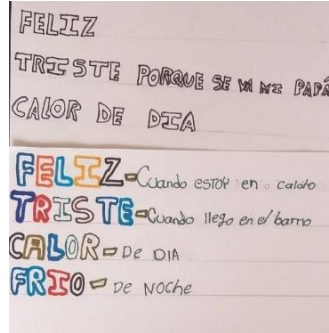 FELIZ
TRISTE PORQUE SE VA MI PAPÁ
CALOR DE DIA
FELIZ-Cuando ESTOY en caloto
TRISTE-Cuando llego en el barrio
CALOR-DE DIA
FRIO-DE NOCHE